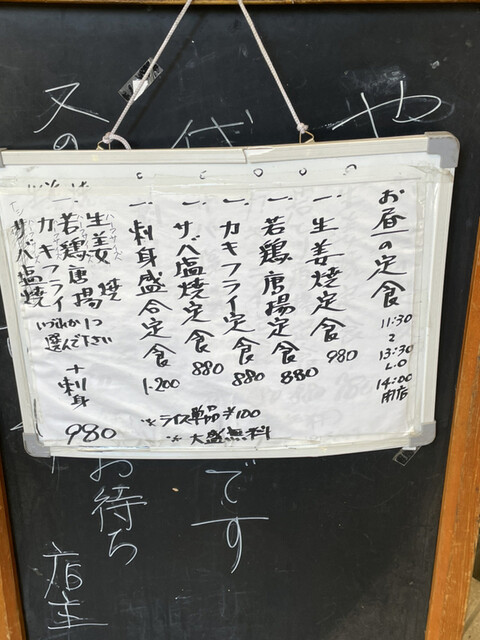 お昼の定食
11:30
〜
13:30
L.O
14:00
閉店
一. 生姜焼定食 980
一. 若鶏唐揚定食 880
一. カキフライ定食 880
一. サバ塩焼定食 880
一. 刺身盛合定食 1.200
※ライス単品 ¥100
※大盛無料
生姜焼
若鶏唐揚
カキフライ
サバ塩焼
いづれか1つ
選んで下さい
+刺身
980
や
です
お待ち
店主
又の